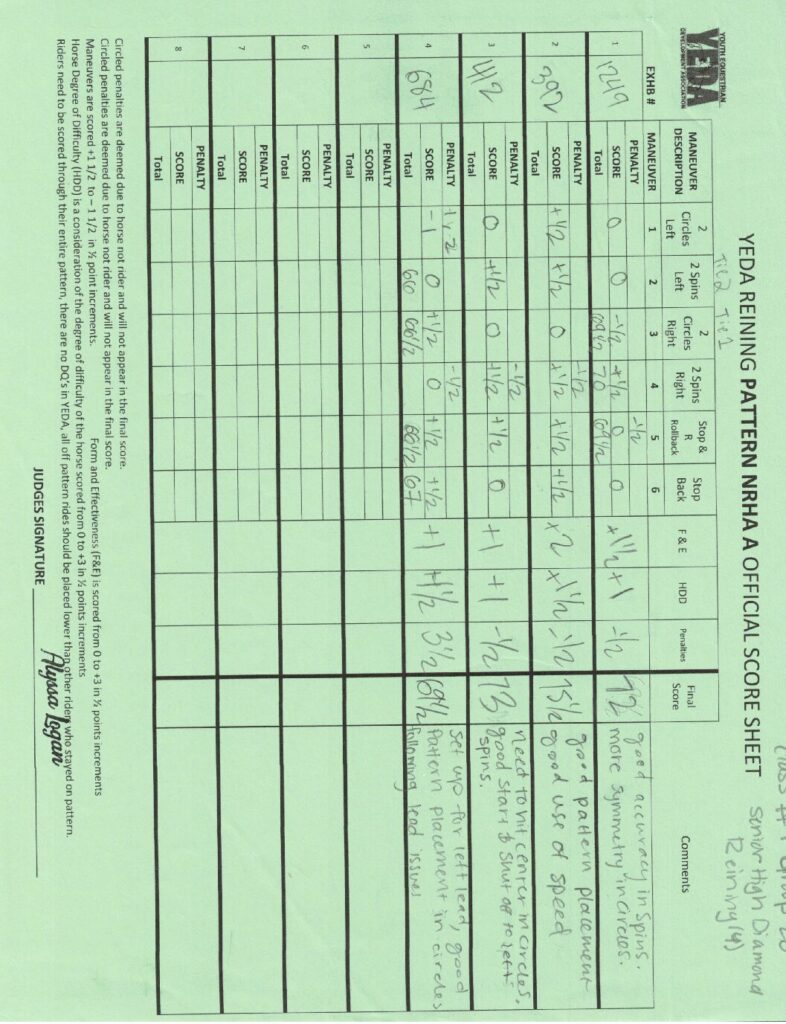 YOUTH EQUESTRIAN
YEDA
DEVELOPMENT ASSOCIATION
YEDA REINING PATTERN NRHA A OFFICIAL SCORE SHEET
Senior High Diamond
Reining (4)
Tie 2 Tie 1
EXHB # MANEUVER DESCRIPTION 2 Circles Left 2 Spins Left 2 Circles Right 2 Spins Right Stop & R Rollback Stop Back F & E HDD Penalties Final Score Comments
MANEUVER 1 2 3 4 5 6
1 1249
PENALTY -1/2
SCORE 0 0 -1/2 +1/2 0 0 +1 1/2 +1 -1/2 72
Total 69 1/2 70 69 1/2
good accuracy in spins.
more symmetry in circles.
2 392
PENALTY -1/2
SCORE +1/2 +1/2 0 +1/2 +1/2 +1/2 +2 +1 1/2 -1/2 75 1/2
Total
good pattern placement
good use of speed
3 412
PENALTY -1/2
SCORE 0 +1/2 0 +1/2 +1/2 0 +1 +1 -1/2 73
Total
need to hit center in circles.
good start & shut off to left
spins.
4 684
PENALTY -1/2
SCORE -1 0 +1/2 0 +1/2 +1/2 +1 +1 1/2 3 1/2 69 1/2
Total 66 66 1/2 66 1/2 67
set up for left lead, good
pattern placement in circles
following lead issues
5 PENALTY
SCORE
Total
6 PENALTY
SCORE
Total
7 PENALTY
SCORE
Total
8 PENALTY
SCORE
Total
Circled penalties are deemed due to horse not rider and will not appear in the final score.
Circled penalties are deemed due to horse not rider and will not appear in the final score.
Maneuvers are scored +1 1/2 to – 1 1/2 in ½ point increments. Form and Effectiveness (F&E) is scored from 0 to +3 in ½ points increments
Horse Degree of Difficulty (HDD) is a consideration of the degree of difficulty of the horse scored from 0 to +3 in ½ points increments
Riders need to be scored through their entire pattern, there are no DQ's in YEDA, all off pattern rides should be placed lower than other riders who stayed on pattern.
JUDGES SIGNATURE Alyssa Logan